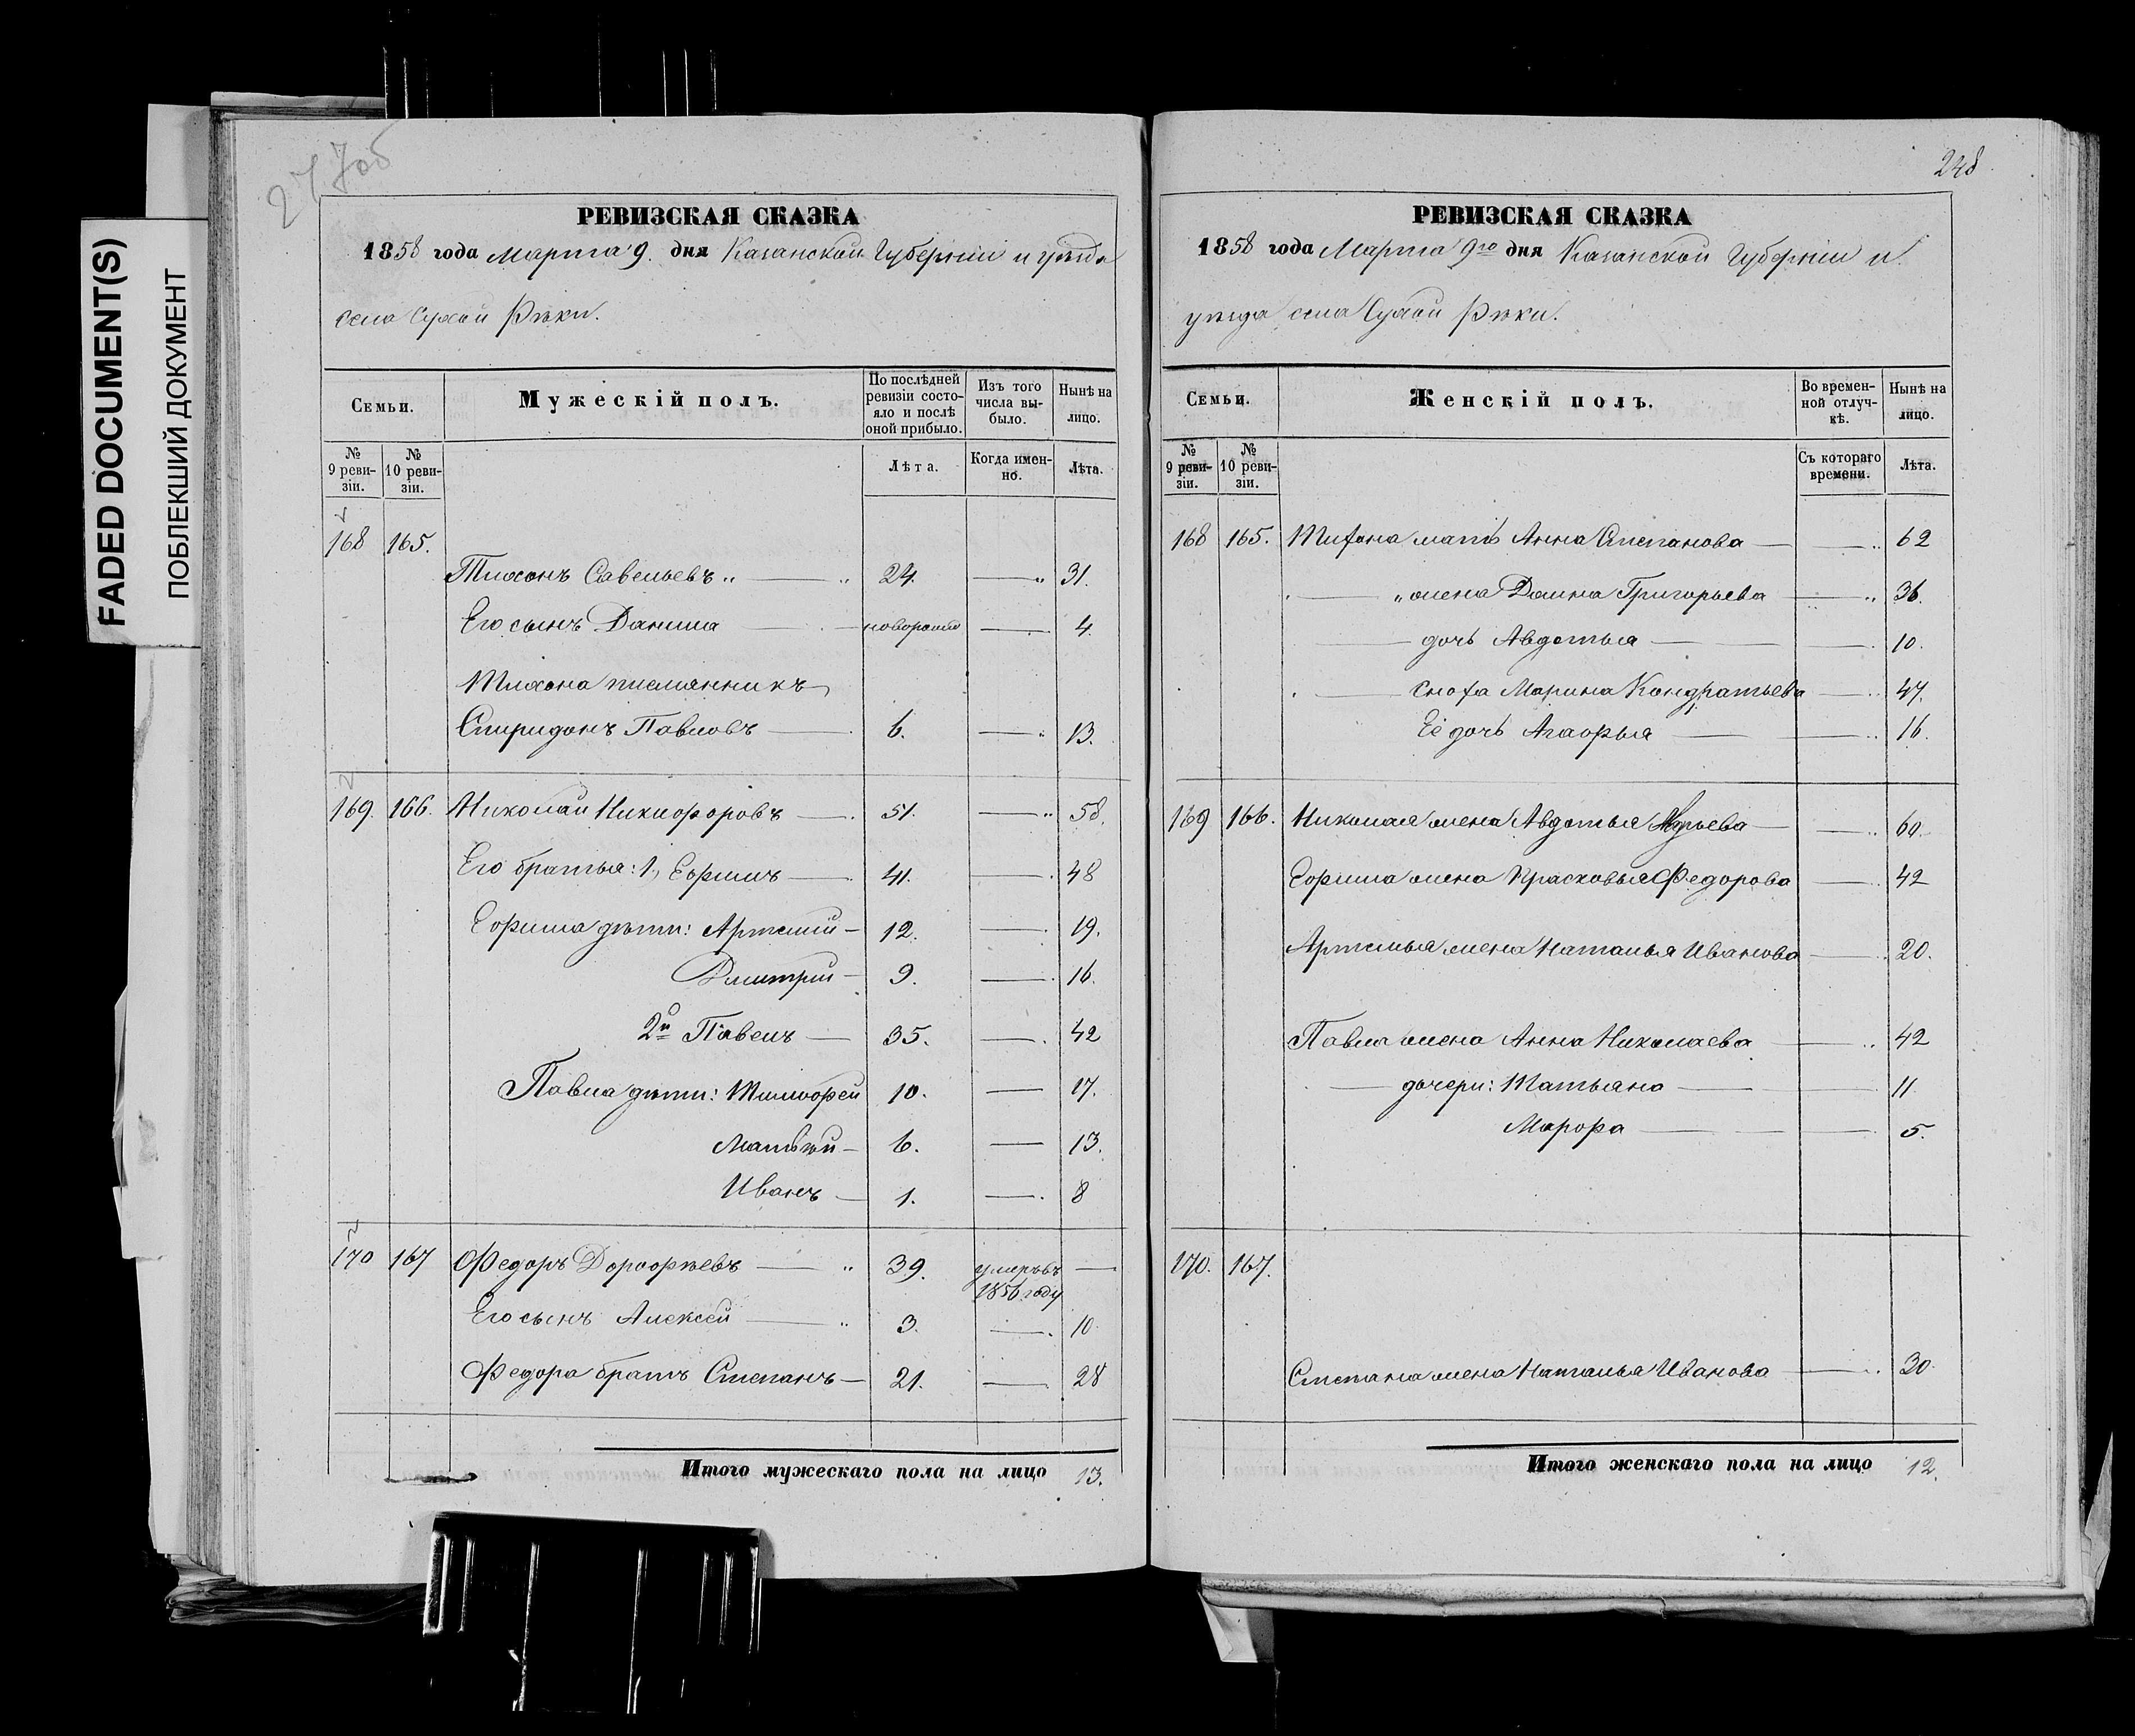 FADED DOCUMENT(S)
ПОБЛЕКШИЙ ДОКУМЕНТ
РЕВИЗСКАЯ СКАЗКА
1858 года Марта 9. дня Казанской Губерніи и уѣзда
села Сухой Рѣки.
Семьи.
Мужескій полъ.
По послѣдней ревизіи состояло и послѣ оной прибыло.
Изъ того числа выбыло.
Нынѣ на лицо.
№ 9 ревизіи.
№ 10 ревизіи.
Лѣта.
Когда именно.
Лѣта.
168 165.
Тихонъ Савельевъ 24. 31.
Его сынъ Данила 4.
Тихона племянникъ
Спиридонъ Павловъ 6. 13.
169. 166. Николай Никифоровъ 51. 58.
Его братья: 1, Ефимъ 41. 48
Ефима дѣти: Артемій 12. 19.
Дмитрій 9. 16.
2й Павелъ 35. 42
Павла дѣти: Тимофей 10. 17.
Матвѣй 6. 13.
Иванъ 1. 8
170 167 Федоръ Дорофѣевъ 39. умеръ въ
1856 году
Его сынъ Алексей 3. 10.
Федора братъ Степанъ 21. 28
Итого мужескаго пола на лицо 13.
248
РЕВИЗСКАЯ СКАЗКА
1858 года Марта 9го дня Казанской Губерніи и
уѣзда села Сухой Рѣки.
Семьи.
Женскій полъ.
Во временной отлучкѣ.
Нынѣ на лицо.
№ 9 ревизіи.
№ 10 ревизіи.
Съ котораго времени.
Лѣта.
168 165. Тихона мать Анна Степанова 62
жена Домна Григорьева 36.
дочь Авдотья 10.
сноха Марина Кондратьева 47.
Её дочь 16.
169 166. Николая жена Авдотья 60.
Ефима жена Прасковья Федорова 42
Артемья жена Наталья Иванова 20.
Павла жена Анна Николаева 42
дочери: Татьяна 11.
Марфа 5.
170. 167.
Степана жена Наталья Иванова 30.
Итого женскаго пола на лицо 12.